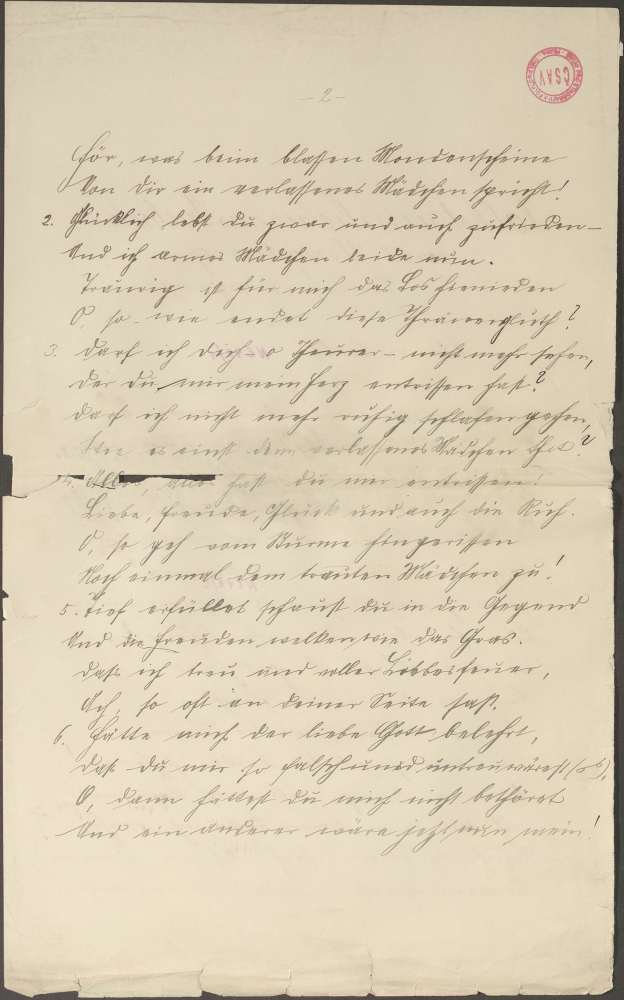 - 2 -
ČSAV
Hör, was beim blassen Mondenscheine
Von dir ein verlassenes Mädchen spricht!
2. Glücklich lebst du zwar und auch zufrieden –
Und ich armes Mädchen leide nun.
Traurig ist für mich das Los hienieden
O, so wie endet diese Thränengluth?
3. Darf ich dich – o Theurer – nicht mehr sehen,
Der du mir mein Herz entrissen hast?
Darf ich nicht mehr ruhig schlafen gehen,
es einst dem verlassenes Mädchen that?
4. Alles, alles hast du mir entrissen!
Liebe, Freude, Glück und auch die Ruh.
O, so geh vom Sturme hingerissen
Noch einmal dem trauten Mädchen zu!
5. Tief erfüllet schaust du in die Gegend
Und die Freuden welken wie das Gras.
Daß ich treu und voller Liebesfeuer,
Ach, so oft an deiner Seite saß.
6. Hätte mich der liebe Gott belehrt,
Daß du mir so falsch und untreu wärest
O, dann hättest du mich nicht bethöret
Und ein anderer wäre jetzt nun mein!